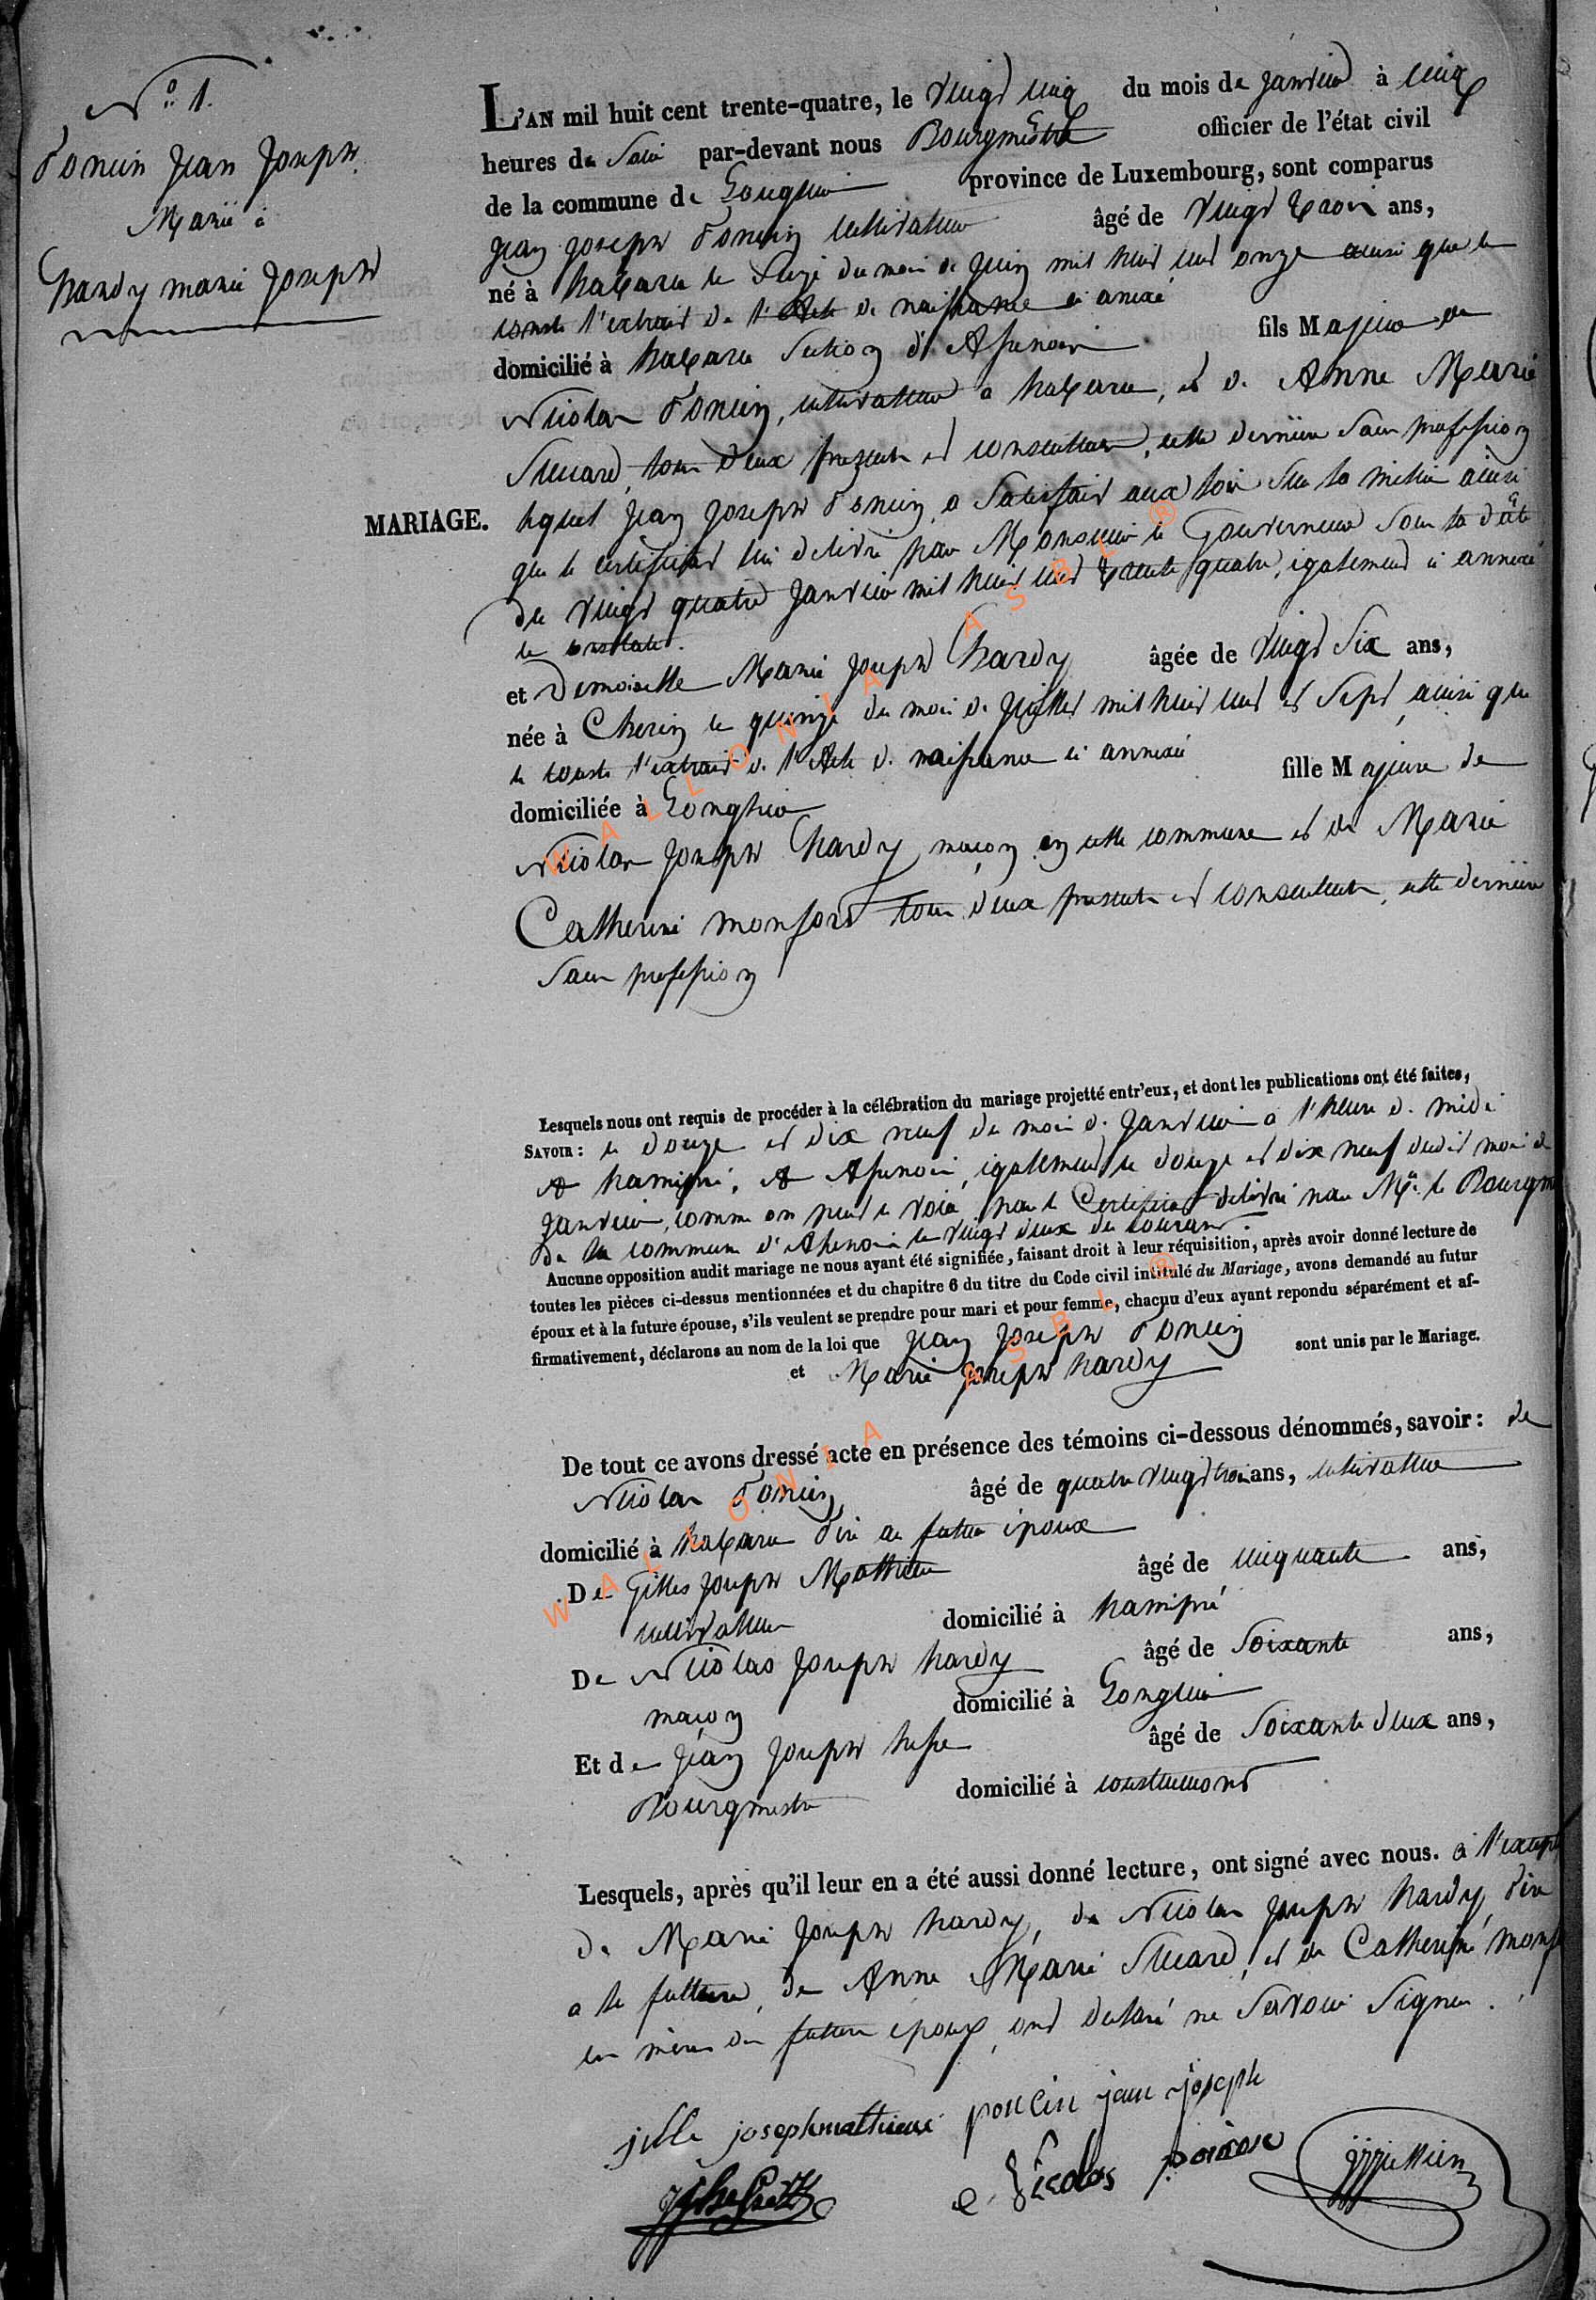 N° 1.
Poncin Jean Joseph
Marié à
hardy marie Joseph
MARIAGE.
L'AN mil huit cent trente-quatre, le vingt cinq du mois de Janvier à cinq
heures de Soir par-devant nous Bourgmestre officier de l'état civil
de la commune de Longlier province de Luxembourg, sont comparus
Jean Joseph Poncin cultivateur âgé de vingt trois ans,
né à habaru le du mois de Juin mil huit cent onze ainsi que le
conste l'extrait de l'Acte de naissance ci anexé
domicilié à habaru Section d'Assenois fils Majeur de
Nicolas Poncin, cultivateur a habaru, et de Anne Marie
tous deux present et consentant, cette derniere Sans profession
lequel Jean Joseph Poncin a Satisfait aux lois Sur la milice ainsi
que le certificat lui delivré par Monsieur le Gouverneur Sous la date
du vingt quatre Janvier mil huit cent trente quatre, egalement ci annexé
le constate.
et Demoiselle Marie Joseph hardy âgée de vingt Six ans,
née à Cherin le quinze du mois de Juillet mil huit cent et Sept, ainsi que
le conste l'extrait de l'Acte de naissance ci annexé
domiciliée à Longlier fille Majeure de
Nicolas Joseph hardy maçon en cette commune et de Marie
Catherine monfort tous deux present et consentant, cette derniere
Sans profession
Lesquels nous ont requis de procéder à la célébration du mariage projetté entr'eux, et dont les publications ont été faites,
SAVOIR : le douze et dix neuf du mois de Janvier a l'heure de midi
A hamipré, A Assenois, egalement le douze et dix neuf dudit mois de
Janvier, comme on peut le voir par le Certificat delivré par Mr. le Bourgm
de la commune d'Assenois le vingt deux du courant.
Aucune opposition audit mariage ne nous ayant été signifiée, faisant droit à leur réquisition, après avoir donné lecture de
toutes les pièces ci-dessus mentionnées et du chapitre 6 du titre du Code civil intitulé du Mariage, avons demandé au futur
époux et à la future épouse, s'ils veulent se prendre pour mari et pour femme, chacun d'eux ayant repondu séparément et af-
firmativement, déclarons au nom de la loi que Jean Joseph Poncin
et Marie Joseph hardy sont unis par le Mariage.
De tout ce avons dressé acte en présence des témoins ci-dessous dénommés, savoir : de
Nicolas Poncin âgé de quatre vingt trois ans, cultivateur
domicilié à habaru Père au futur époux
De Gilles Joseph Mathieu âgé de cinquante ans,
cultivateur domicilié à hamipré
De Nicolas Joseph hardy âgé de Soixante ans,
maçon domicilié à Longlier
Et de Jean Joseph âgé de Soixante deux ans,
Bourgmestre domicilié à coustumont
Lesquels, après qu'il leur en a été aussi donné lecture, ont signé avec nous. à l'except
de Marie Joseph hardy, de Nicolas Joseph hardy, Père
a la future, de Anne Marie et de Catherine monf
les mères des futurs epoux, ont declaré ne Savoir Signer.
jille joseph mathieux poncin jean joseph
Nicolas
WALLONIA ASBL ®
WALLONIA ASBL ®